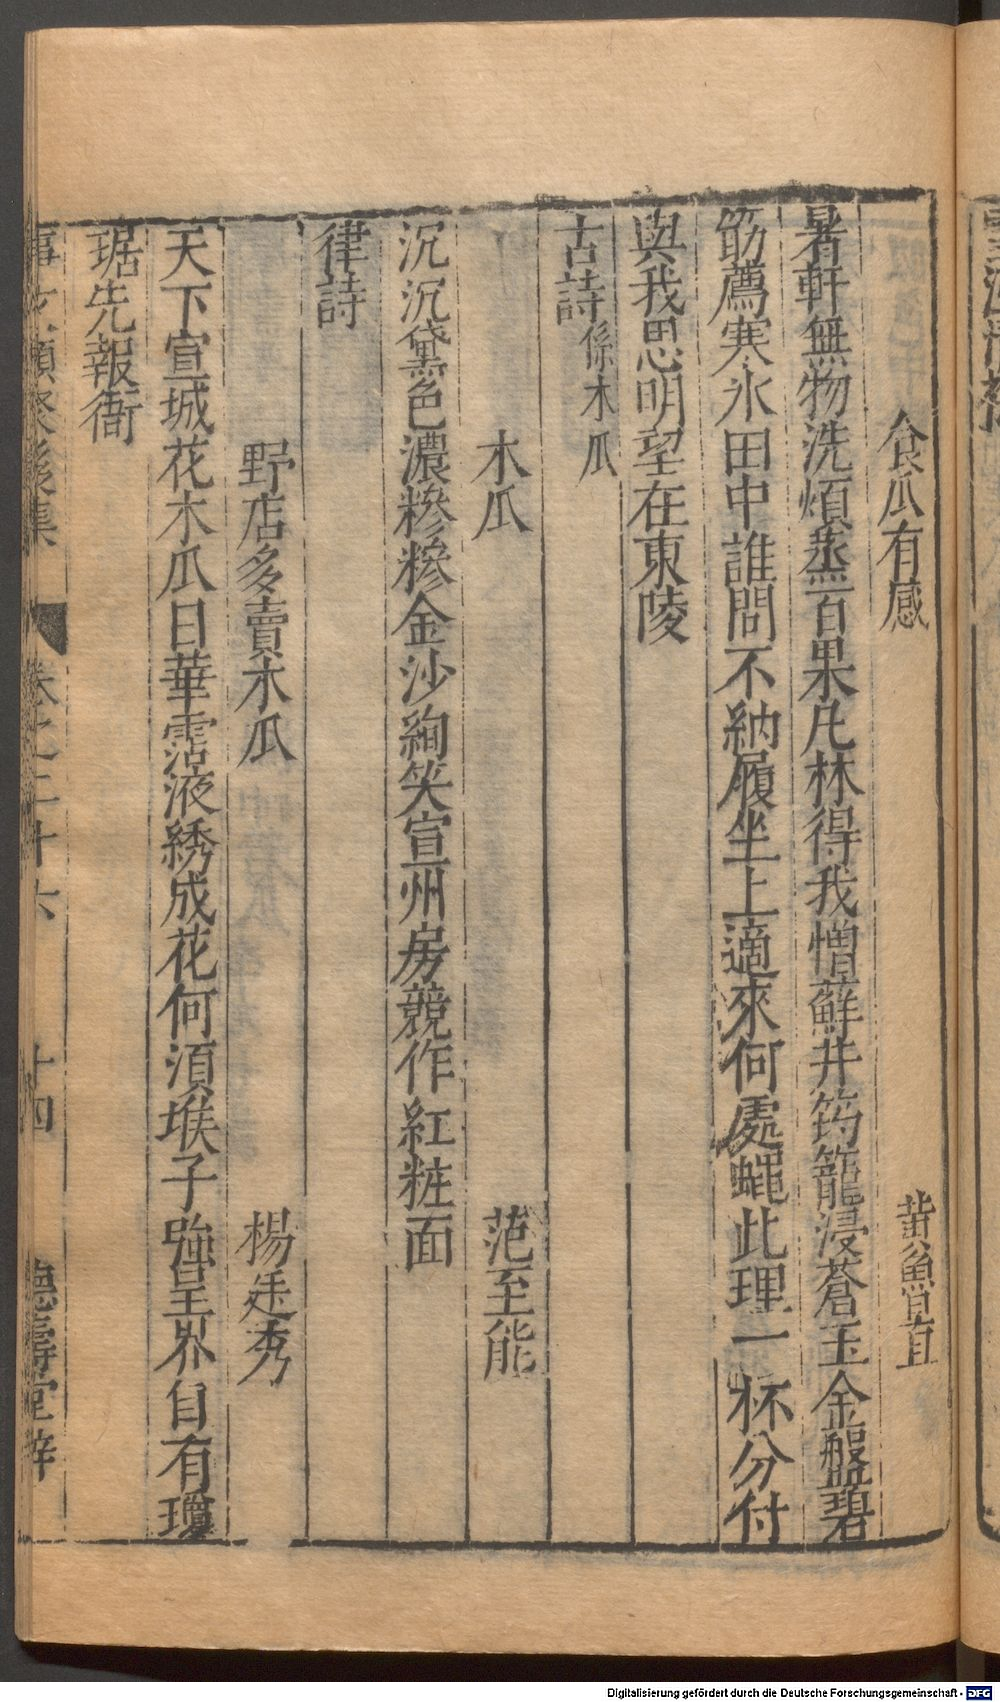 食瓜有感　黄魯直
暑軒無物洗煩蒸百果凡林得我憎蘚井筠籠浸蒼玉金盤碧
筯薦寒氷田中誰問不納履坐上適來何處蠅此理一杯分付
與我思明望在東陵
古詩係木瓜
木瓜　范至能
沉沉黛色濃糝糝金沙絢笑宣州房競作紅粧面
律詩
野店多賣木瓜　楊廷秀
天下宣城花木瓜日華露液綉成花何湏堠子強呈界自有瓊
琚先報衙
事文類聚後集　卷之二十六　十四　德壽堂梓
Digitalisierung gefördert durch die Deutsche Forschungsgemeinschaft - DFG